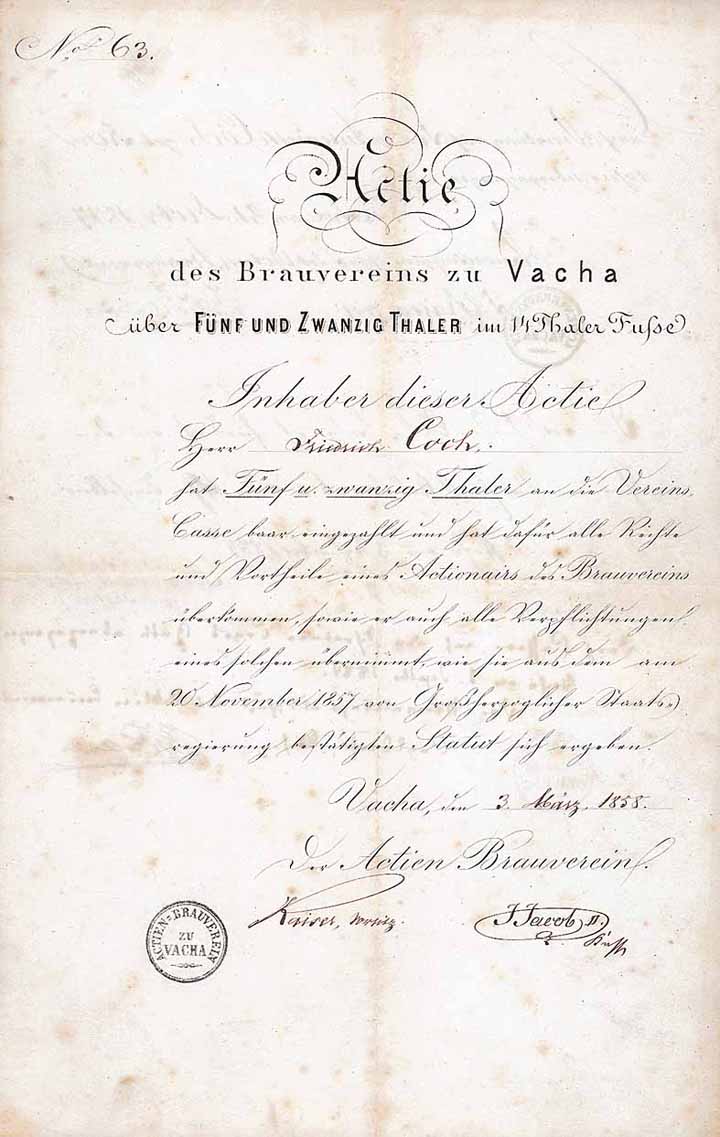 No 63.
Actie
des Brauvereins zu Vacha
über FÜNF UND ZWANZIG THALER im 14 Thaler Fuſse
Inhaber dieser Actie
Herr Friedrich Coch.
hat Fünf u. zwanzig Thaler an die Vereins-
Casse baar eingezahlt und hat dafür alle Rechte
und Vortheile eines Actionairs des Brauvereins
überkommen, sowie er auch alle Verpflichtungen
eines solchen übernimmt, wie sie aus dem am
20 November 1857 von Großherzoglicher Staats-
regierung bestätigten Statut sich ergeben.
Vacha, den 3. März 1858.
Der Actien Brauverein.
Kaiser,
J Jacob II.
ACTIEN-BRAUVEREIN
ZU
VACHA